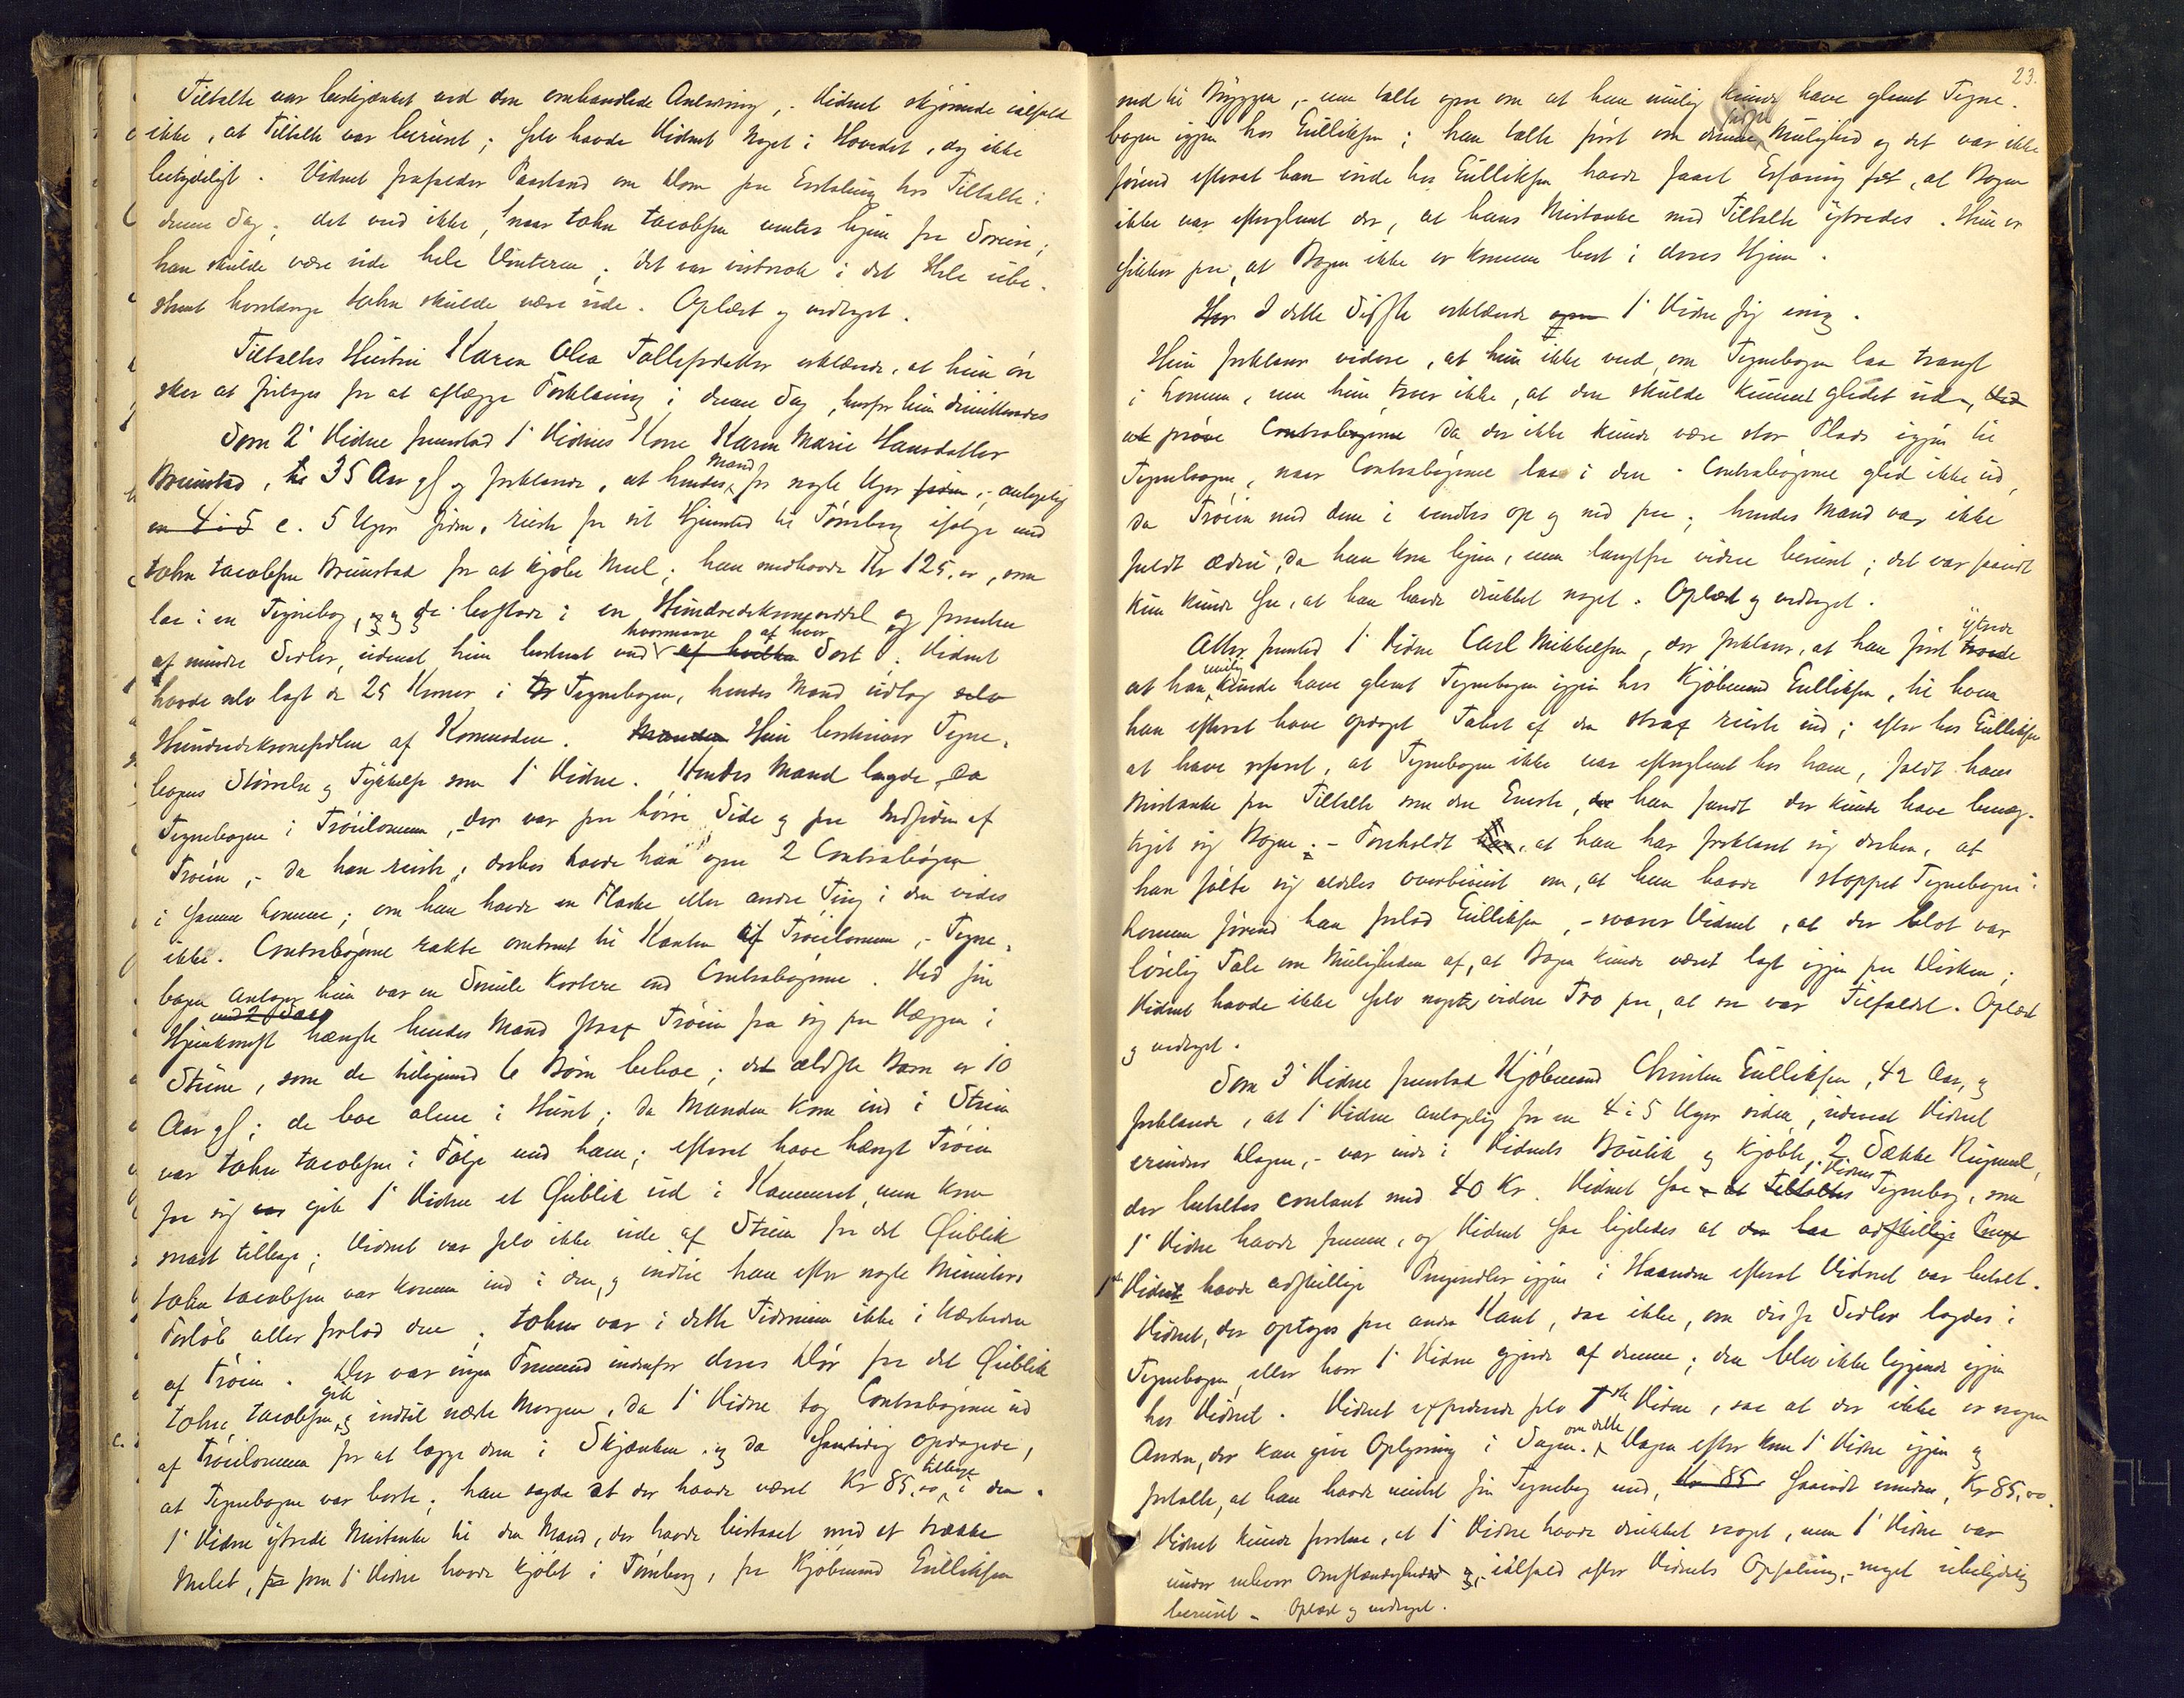 Tiltalte var beskjænket ved den omhandlede Anledning, - Vidnet skjønnede ialfald
ikke, at Tiltalte var beruset; selv havde Vidnet Noget i Hovedet, dog ikke
betydeligt. Vidnet frafalder Paastand om Dom paa Erstatning hos Tiltalte i
denne Sag; det ved ikke, naar John Jacobsen ventes hjem fra
han skulde være ude hele Vinteren; det var vistnok i det Hele ube-
stemt hvorlænge John skulde være ude. Oplæst og vedtaget.
Tiltaltes Hustru Karen Olea Tollefsdatter erklærede, at hun øn-
sker at fritages for at aflægge Forklaring i denne Sag, hvorfor hun dimitteredes
Som 2' Vidne fremstod 1' Vidnes Kone Karen Marie Hansdatter
Brunstad, 35 Aar gl og forklarede, at hendes Mand for nogle Uger siden, - antagelig
en 4 à 5 c. 5 Uger siden, reiste fra sit Hjemsted til Tønsberg ifølge med
John Jacobsen Brunstad for at kjøbe Meel; han medhavde Kr 125,00, som
laa i en Tegnebog, og de bestode i en Hundredekroneseddel og forresten
af mindre Sedler, uden at hun bestemt ved hvormange af hver af hvilken Sort. Vidnet
havde selv lagt de 25 Kroner i Tegnebogen, hendes Mand udtog selv
Hundredekronesedlen af Kommoden. Manden Hun beskriver Tegne-
bogens Størrelse og Tykkelse som 1' Vidne. Hendes Mand lagde da
Tegnebogen i Trøielommen, - der var paa høire Side og paa Indsiden af
Trøien, - da han reiste; desuden havde han ogsaa 2 Contrabøger
i samme Lomme; om han havde en Flaske eller andre Ting i den vides
ikke. Contrabøgerne rakte omtrent til Kanten af Trøielommen, - Tegne-
bogen antager hun var en Smule kortere end Contrabøgerne. Ved sin
Hjemkomst hængte hendes Mand strax Trøien fra sig paa Væggen i
Stuen, som de tilligemed 6 Børn beboe; det ældste Barn er 10
Aar gl; de boe alene i Huset; da Manden kom ind i Stuen
var John Jacobsen i Følge med ham; efterat have hængt Trøien
fra sig gik 1' Vidne et Øieblik ud i Kammeret, men kom
snart tilbage; Vidnet var selv ikke ude af Stuen fra det Øieblik
John Jacobsen var kommen ind i den, og indtil han efter nogle Minuters
Forløb atter forlod den; John var i dette Tidsrum ikke i Nærheden
af Trøien. Der var ingen Fremmed indenfor deres Dør fra det Øieblik
John Jacobsen gik og indtil næste Morgen, da 1' Vidne tog Contrabøgerne ud
af Trøielommen for at lægge dem i Skjænken, og da samtidig opdagede,
at Tegnebogen var borte; han sagde at der havde været Kr 85,00 tilbage i den.
1' Vidne ytrede Mistanke til den Mand, der havde bistaaet med at trække
Melet, som 1' Vidne havde kjøbt i Tønsberg, fra Kjøbmand Gulliksen
23.
ned til Bryggen, - men talte ogsaa om at han mulig kunde have glemt Tegne-
bogen igjen hos Gulliksen; han talte først om denne sidste Mulighed og det var ikke
førend efterat han inde hos Gulliksen havde faaet Erfaring for, at Bogen
ikke var efterglemt der, at hans Mistanke mod Tiltalte ytredes. Hun er
sikker paa, at Bogen ikke er kommen bort i deres Hjem.
I dette Sidste erklærede 1' Vidne sig enig.
Hun forklarer videre, at hun ikke ved, om Tegnebogen laa trangt
i Lommen, men hun troer ikke, at den skulde kunnet glidet ud,
prøve Contrabøgerne da der ikke kunde være stor Plads igjen til
Tegnebogen, naar Contrabøgerne laa i den. Contrabøgerne gled ikke ud,
da Trøien med dem i vendtes op og ned paa; hendes Mand var ikke
fuldt ædru, da han kom hjem, men langtfra videre beruset; det var saavidt
hun kunde see, at han havde drukket noget. Oplæst og vedtaget.
Atter fremstod 1' Vidne Carl Mikkelsen, der forklarer, at han først ytrede
at han mulig kunde have glemt Tegnebogen igjen hos Kjøbmand Gulliksen, til hvem
han efterat have opdaget Tabet af den strax reiste ind; efter hos Gulliksen
at have erfaret, at Tegnebogen ikke var efterglemt hos ham, faldt hans
Mistanke paa Tiltalte som den Eneste, han fandt der kunde have bemæg-
tiget sig Bogen. - Foreholdt, at han har forklaret sig derhen, at
han følte sig aldeles overbevist om, at han havde stoppet Tegnebogen i
Lommen førend han forlod Gulliksen, - svarer Vidnet, at der blot var
løselig Tale om Muligheden af, at Bogen kunde været lagt igjen paa Disken;
Vidnet havde ikke selv noget videre Tro paa, at saa var Tilfældet. Oplæst
og vedtaget.
Som 3' Vidne fremstod Kjøbmand Christen Gulliksen, 42 Aar, og
forklarede, at 1' Vidne antagelig for en 4 à 5 Uger siden, uden at Vidnet
erindrer Dagen, - var inde i Vidnets Boutik og kjøbte 2 Sække Rugmel,
der betaltes contant med 40 Kr. Vidnet saa 1' Vidnes Tegnebog, som
1' Vidne havde fremme, og Vidnet saa ligeledes at der laa adskillige Penge
1ste Vidne havde adskillige Pengesedler igjen i Haanden efterat Vidnet var betalt.
Vidnet, der optoges paa anden Kant, saa ikke, om disse Sedler lagdes i
Tegnebogen, eller hvor 1' Vidne gjorde af denne; den blev ikke liggende igjen
hos Vidnet. Vidnet expederede selv 1ste Vidne, saa at der ikke er nogen
Anden, der kan give Oplysning i Sagen om dette. Dagen efter kom 1' Vidne igjen og
fortalte, at han havde mistet sin Tegnebog med, Kr 85 saavidt erindres, Kr 85,00.
Vidnet kunde forstaa, at 1' Vidne havde drukket noget, men 1' Vidne var
under enhver Omstændighed, - ialfald efter Vidnets Opfatning, - meget ubetydelig
beruset - Oplæst og vedtaget.